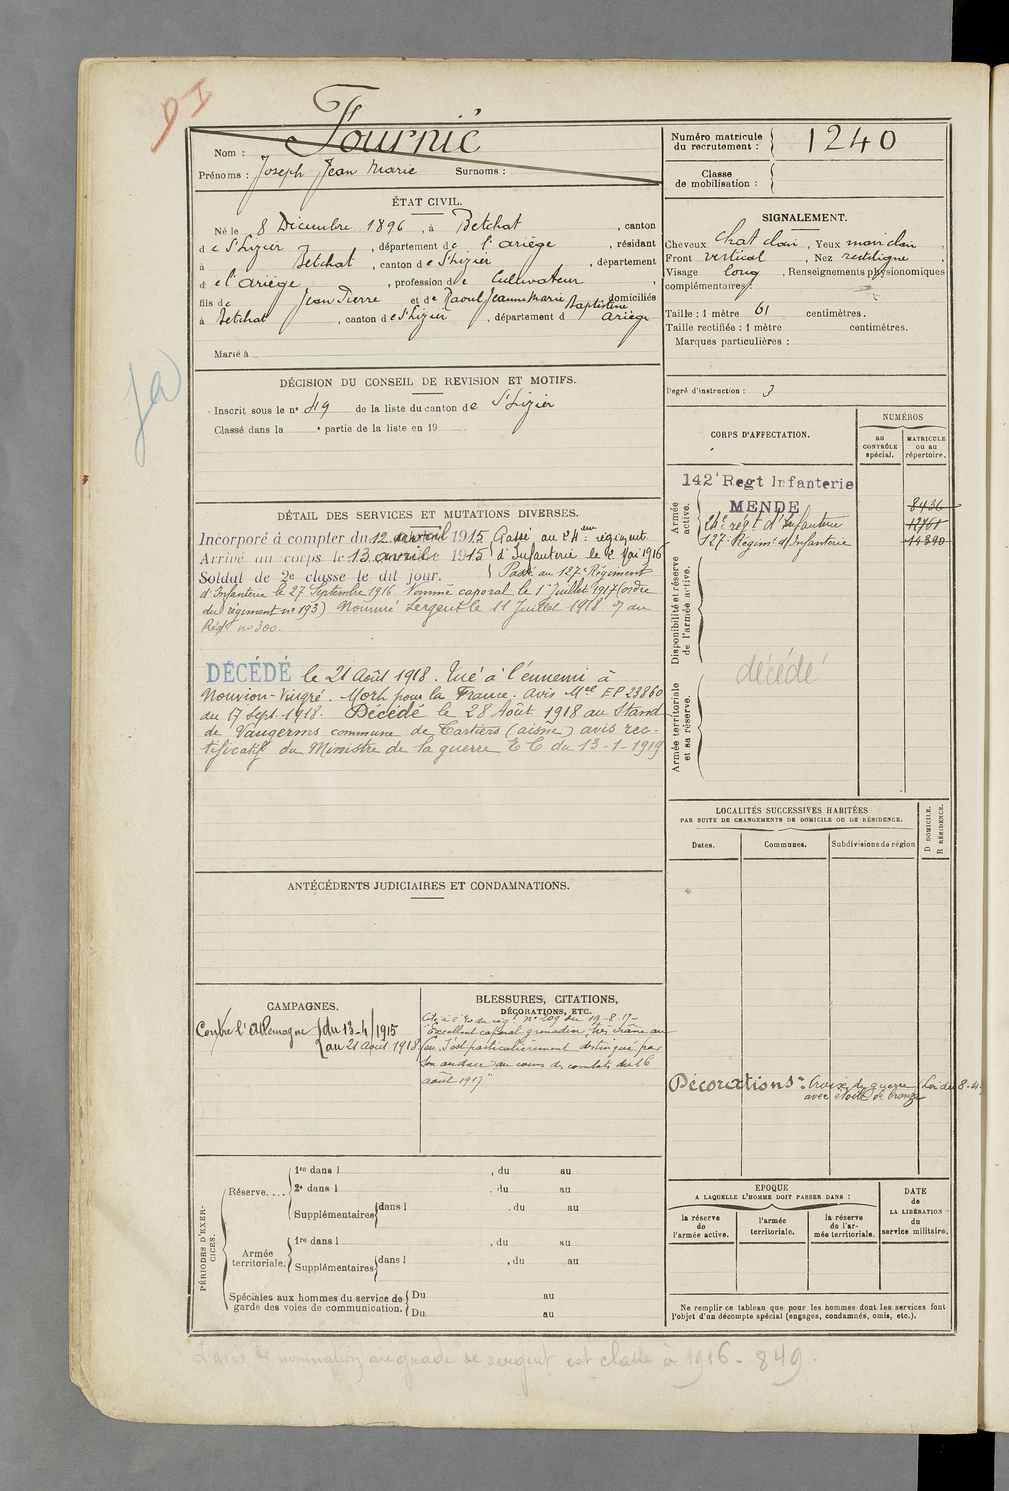 DI
Nom : Fournié
Prénoms : Joseph Jean Marie Surnoms :
Numéro matricule du recrutement : 1240
Classe de mobilisation :
ÉTAT CIVIL.
Né le 8 Décembre 1896, à Betchat, canton
de St Lizier, département de l'ariège, résidant
à Betchat, canton de St Lizier, département
de l'ariège, profession de Cultivateur,
fils de Jean Pierre et de Raoul Jeanne Marie Baptistine domiciliés
à Betchat, canton de St Lizier, département d Ariège
Marié à
SIGNALEMENT.
Cheveux chat clair, Yeux clair,
Front vertical, Nez rectiligne,
Visage long, Renseignements physionomiques
complémentaires :
Taille : 1 mètre 61 centimètres.
Taille rectifiée : 1 mètre centimètres.
Marques particulières :
Degré d'instruction : 3
DÉCISION DU CONSEIL DE REVISION ET MOTIFS.
Inscrit sous le n° 49 de la liste du canton de St Lizier
Classé dans la e partie de la liste en 19
CORPS D'AFFECTATION.
NUMÉROS
au CONTRÔLE spécial.
MATRICULE ou au répertoire.
Armée active.
142e Regt Infanterie
MENDE 8436
24e régt d'Infanterie 12761
127e Régimt d'Infanterie 14890
Disponibilité et réserve de l'armée active.
décédé
Armée territoriale et sa réserve.
DÉTAIL DES SERVICES ET MUTATIONS DIVERSES.
Incorporé à compter du 12 avril 1915 Passé au 24eme régiment
Arrivé au corps le 13 avril 1915 d'Infanterie le 2 Mai 1916
Soldat de 2e classe le dit jour. Passé au 127e Régiment
d'Infanterie le 27 Septembre 1916 Nommé caporal le 1er Juillet 1917 (ordre
du régiment n° 193) Nommé Sergent le 11 Juillet 1918 du
Régt n° 300.
DÉCÉDÉ le 21 Août 1918. Tué à l'ennemi à
Nouvion-Vingré. Mort pour la France. Avis Mel EP 23860
du 17 Sept. 1918. Décédé le 28 Août 1918 au Stand
de Vaugerms commune de Tartiers (aisne) avis rec-
tificatif du Ministre de la guerre E C du 13-1-1919
ja
LOCALITÉS SUCCESSIVES HABITÉES
PAR SUITE DE CHANGEMENTS DE DOMICILE OU DE RÉSIDENCE.
Dates.
Communes.
Subdivisions de région
D DOMICILE.
R RÉSIDENCE.
ANTÉCÉDENTS JUDICIAIRES ET CONDAMNATIONS.
CAMPAGNES.
Contre l'Allemagne du 13-4-1915
au 21 août 1918
BLESSURES, CITATIONS,
DÉCORATIONS, ETC.
Cité à l'O. du régt n° 209 du 19-8-17-
"Excellent caporal grenadier, très crâne au
feu. S'est particulièrement distingué par
son audace au cours des combats du 16
août 1917"
Décorations : Croix de guerre (Loi du 8-4-
avec étoile de bronze
PÉRIODES D'EXERCICES.
Réserve....
1re dans l , du au
2e dans l , du au
Supplémentaires dans l , du au
Armée territoriale.
1re dans l , du au
Supplémentaires dans l , du au
Spéciales aux hommes du service de garde des voies de communication.
Du au
Du au
EPOQUE
A LAQUELLE L'HOMME DOIT PASSER DANS :
la réserve de l'armée active.
l'armée territoriale.
la réserve de l'armée territoriale.
DATE de LA LIBÉRATION du service militaire.
Ne remplir ce tableau que pour les hommes dont les services font
l'objet d'un décompte spécial (engagés, condamnés, omis, etc.).
L'avis de nomination au grade de sergent est classé à 1916 - 849.